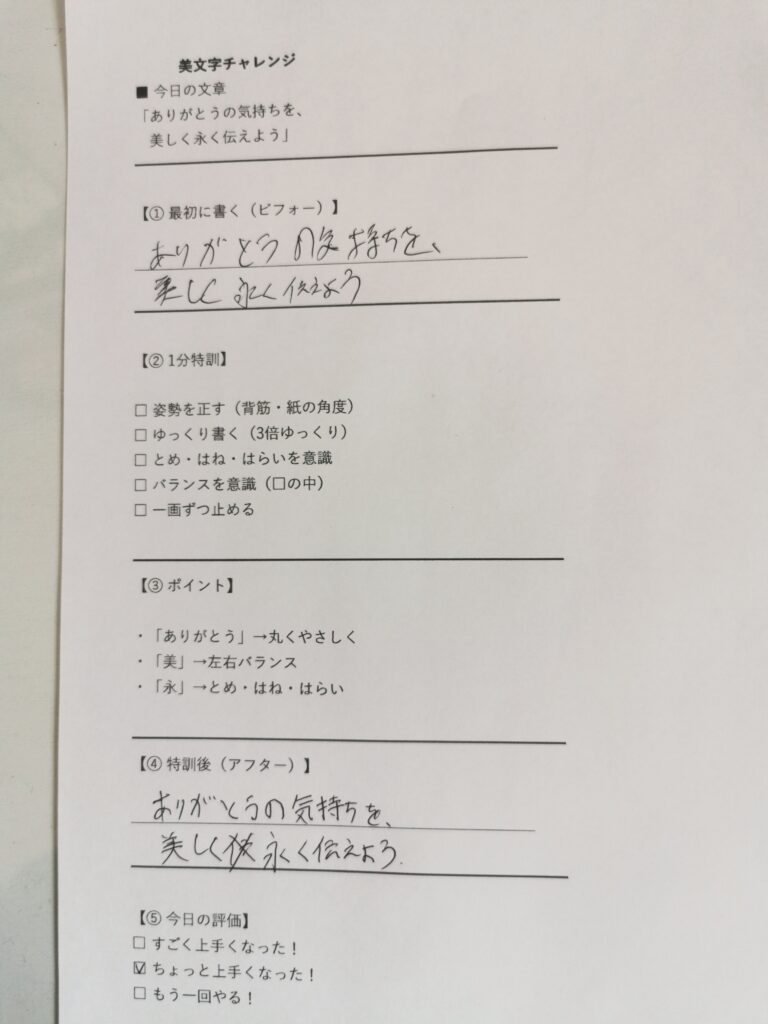 美文字チャレンジ
■ 今日の文章
「ありがとうの気持ちを、
美しく永く伝えよう」
【① 最初に書く（ビフォー）】
ありがとうの気持ちを、
美しく永く伝えよう
【② 1分特訓】
□ 姿勢を正す（背筋・紙の角度）
□ ゆっくり書く（3倍ゆっくり）
□ とめ・はね・はらいを意識
□ バランスを意識（□の中）
□ 一画ずつ止める
【③ ポイント】
・「ありがとう」→丸くやさしく
・「美」→左右バランス
・「永」→とめ・はね・はらい
【④ 特訓後（アフター）】
ありがとうの気持ちを、
美しく永く伝えよう.
【⑤ 今日の評価】
□ すごく上手くなった！
☑ ちょっと上手くなった！
□ もう一回やる！